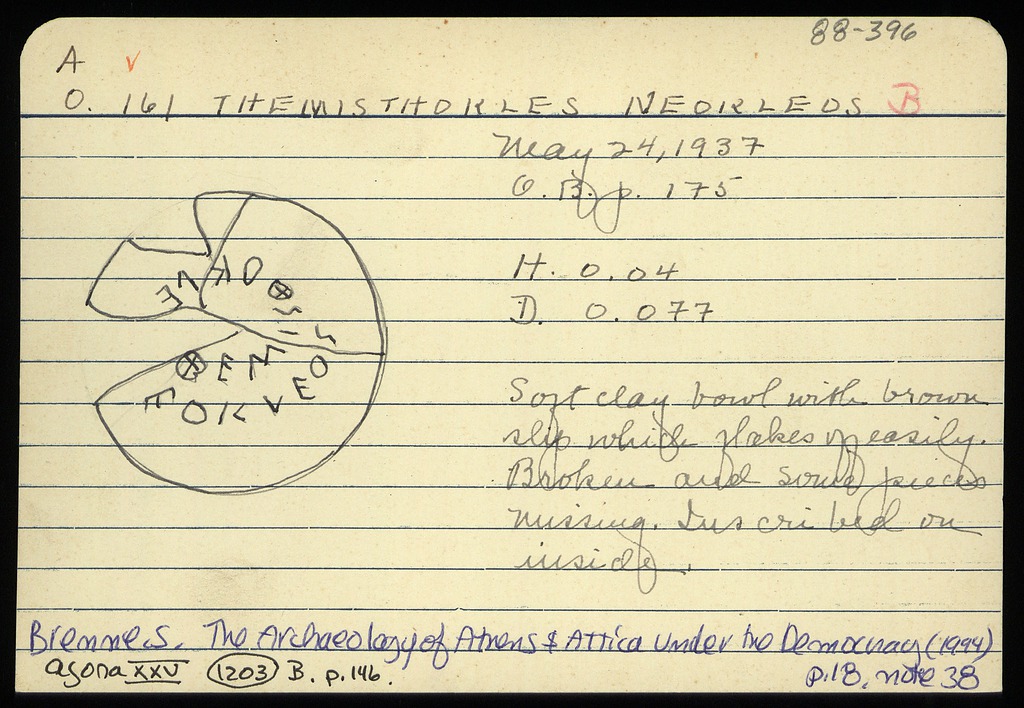 88-396
A v
O. 161 THEMISTHOKLES NEOKLEOS B
May 24, 1937
O.B. p. 175
H. 0.04
D. 0.077
ΕΛΚΟ⊗ΣΙΜΕ⊗
ΕΟΚΛΕΟΣ
Soft clay bowl with brown
slip which flakes off easily.
Broken and some pieces
missing. Inscribed on
inside.
Brenne, S. The Archaeology of Athens & Attica under the Democracy (1994)
p.18, note 38
Agora XXV (1203) B. p.146.